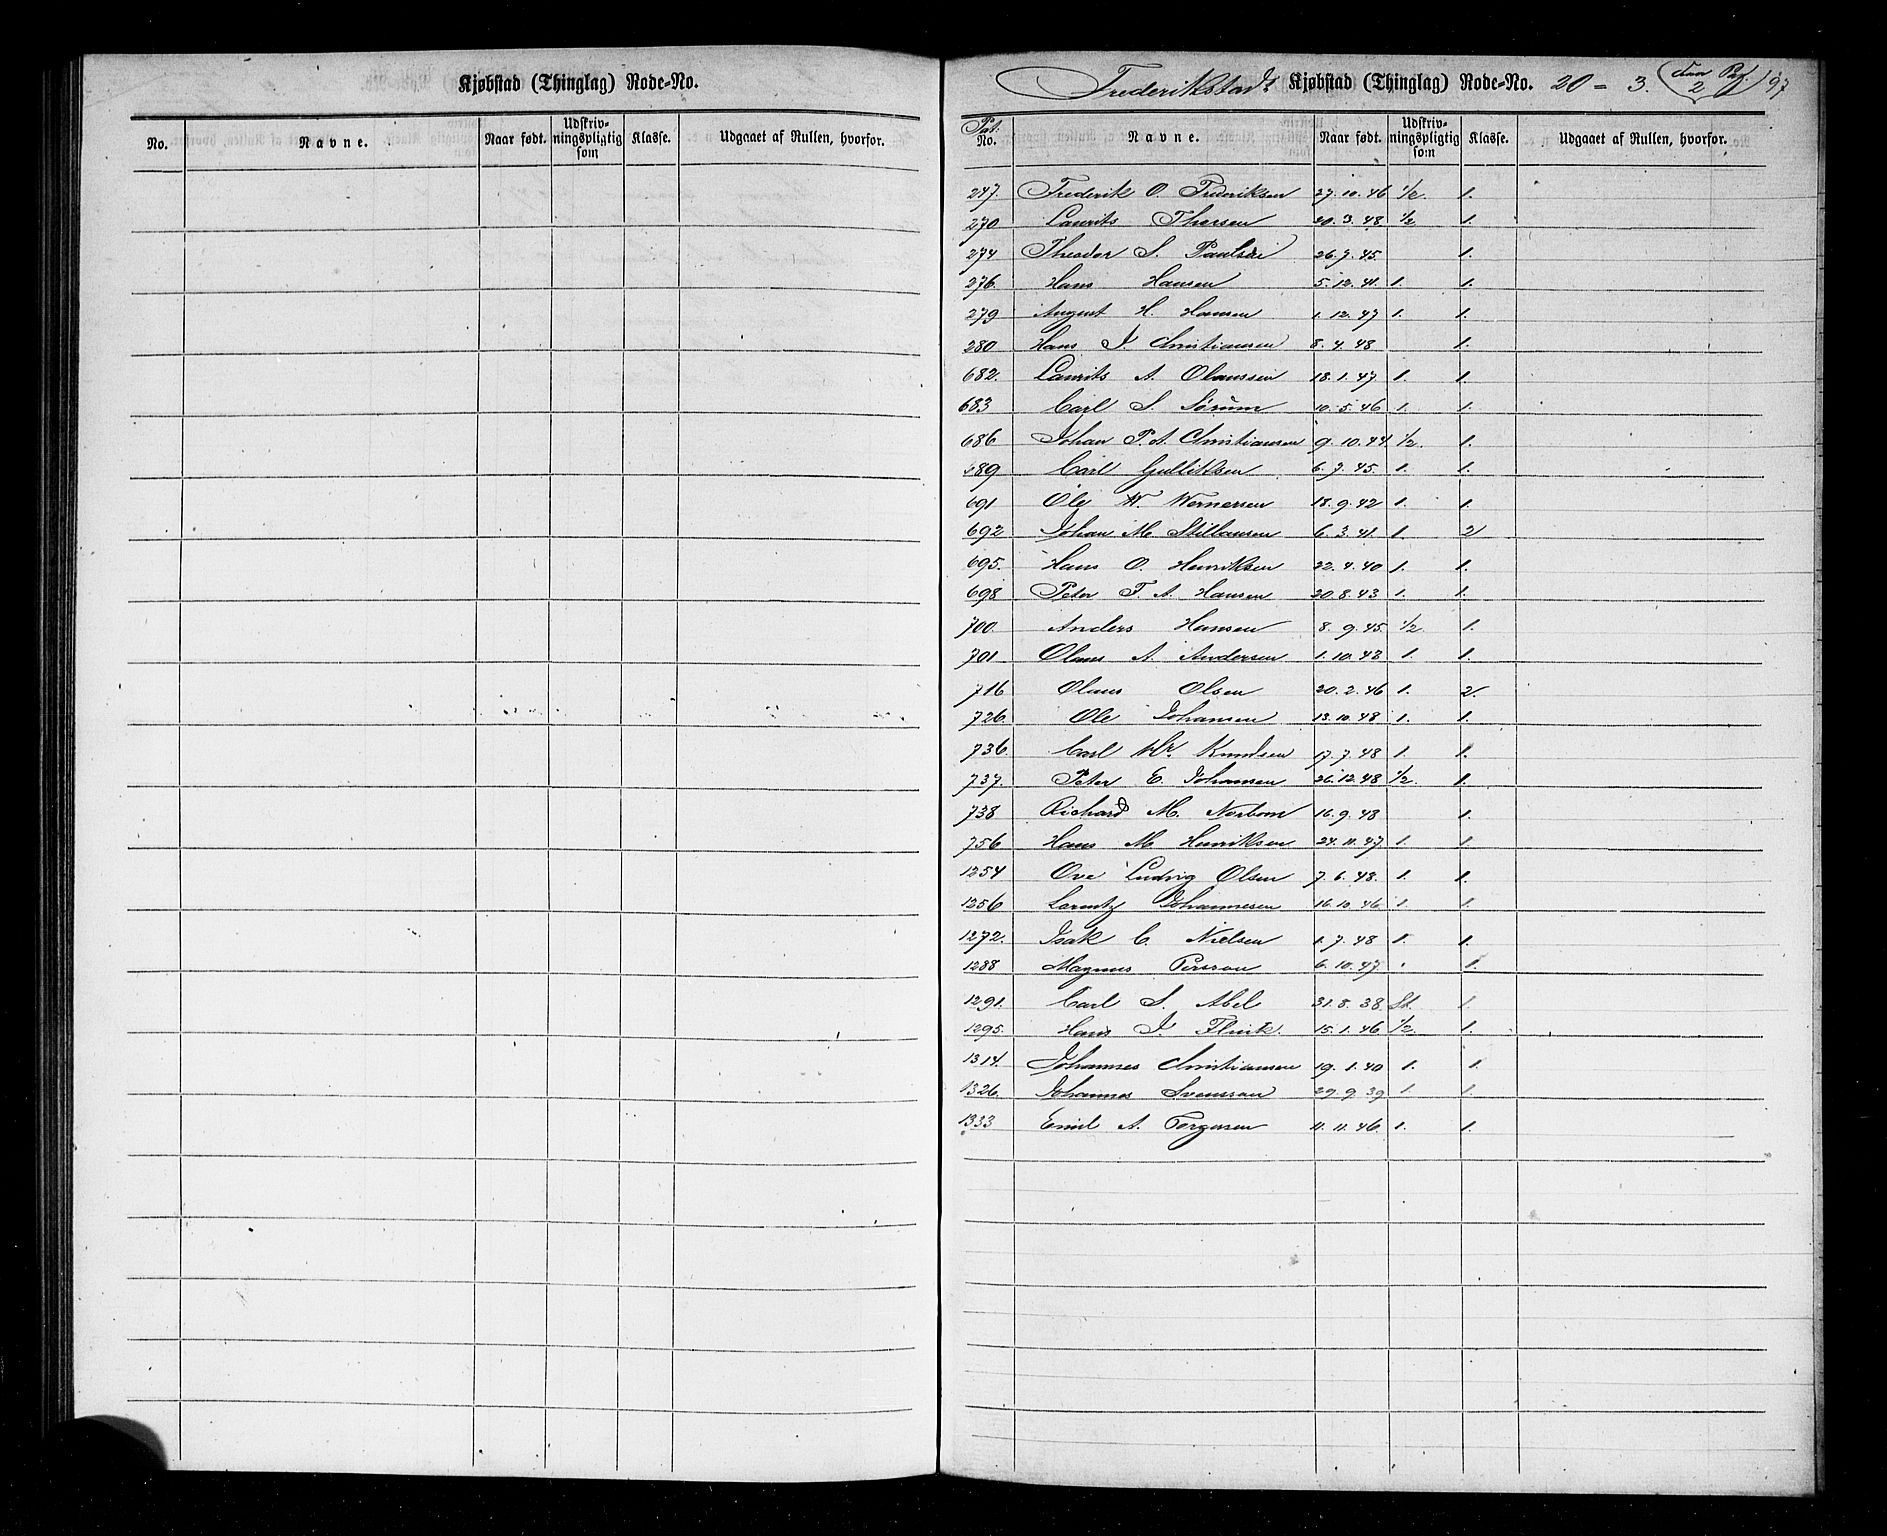 Kjøbstad (Thinglag) Rode-No.
No. Navne. Naar født. Udskriv-ningspligtig som Klasse. Udgaaet af Rullen, hvorfor.
Frederikstads Kjøbstad (Thinglag) Rode-No. 20 = 3. 2 97
Pat. No. Navne. Naar født. Udskriv-ningspligtig som Klasse. Udgaaet af Rullen, hvorfor.
247. Frederik O. Frederiksen 27.10.46 1/2. 1.
270 Laurits Thorsen 20.3.48 1/2 1.
274 Theodor S. Paulsen 26.7.45. 1.
276. Hans Hansen 5.12.41. 1. 1.
279 August H. Hansen 1.12.47 1. 1.
280 Hans J. Christiansen 8.4.48 1.
682. Laurits A. Olaussen 18.1.47 1. 1.
683 Carl S. Sörum 10.5.46 1. 1.
686 Johan P. A. Christiansen 9.10.44 1/2. 1.
689 Carl Gulliksen 6.7.45. 1. 1.
691 Ole W. Wernersen 18.9.42 1. 1.
692 Johan M. Stillausen 6.3.41. 1. 2
695. Hans O. Henriksen 22.4.40 1. 1.
698 Peter F. A. Hansen 20.8.43 1. 1.
700. Anders Hansen 8.9.45. 1/2. 1.
701 Olaus A. Andersen 1.10.43 1. 1.
716 Olaus Olsen 20.2.46 1. 2.
726. Ole Johansen 13.10.48 1. 1.
736. Carl Knudsen 17.7.48 1. 1.
737. Peter E. Johansen 26.12.48 1/2. 1.
738 Richard M. Norbom 16.9.48 1.
756 Hans M Henriksen 24.11.47 1. 1.
1254 Ove Ludvig Olsen 7.6.48. 1. 1.
1256 Lorentz Johannesen 16.10.46 1. 1.
1272. Isak C. Nielsen 1.7.48 1. 1.
1288 Magnus Persson 6.10.47 . 1.
1291. Carl S. Abel 31.8.38 St. 1.
1295. Hans J. Flink. 15.1.46 1/2. 1.
1314. Johannes Christiansen 19.1.40 1. 1.
1326. Johannes Svensson 29.9.39 1. 1.
1333 Emil A. Torgersen 11.11.46. 1. 1.